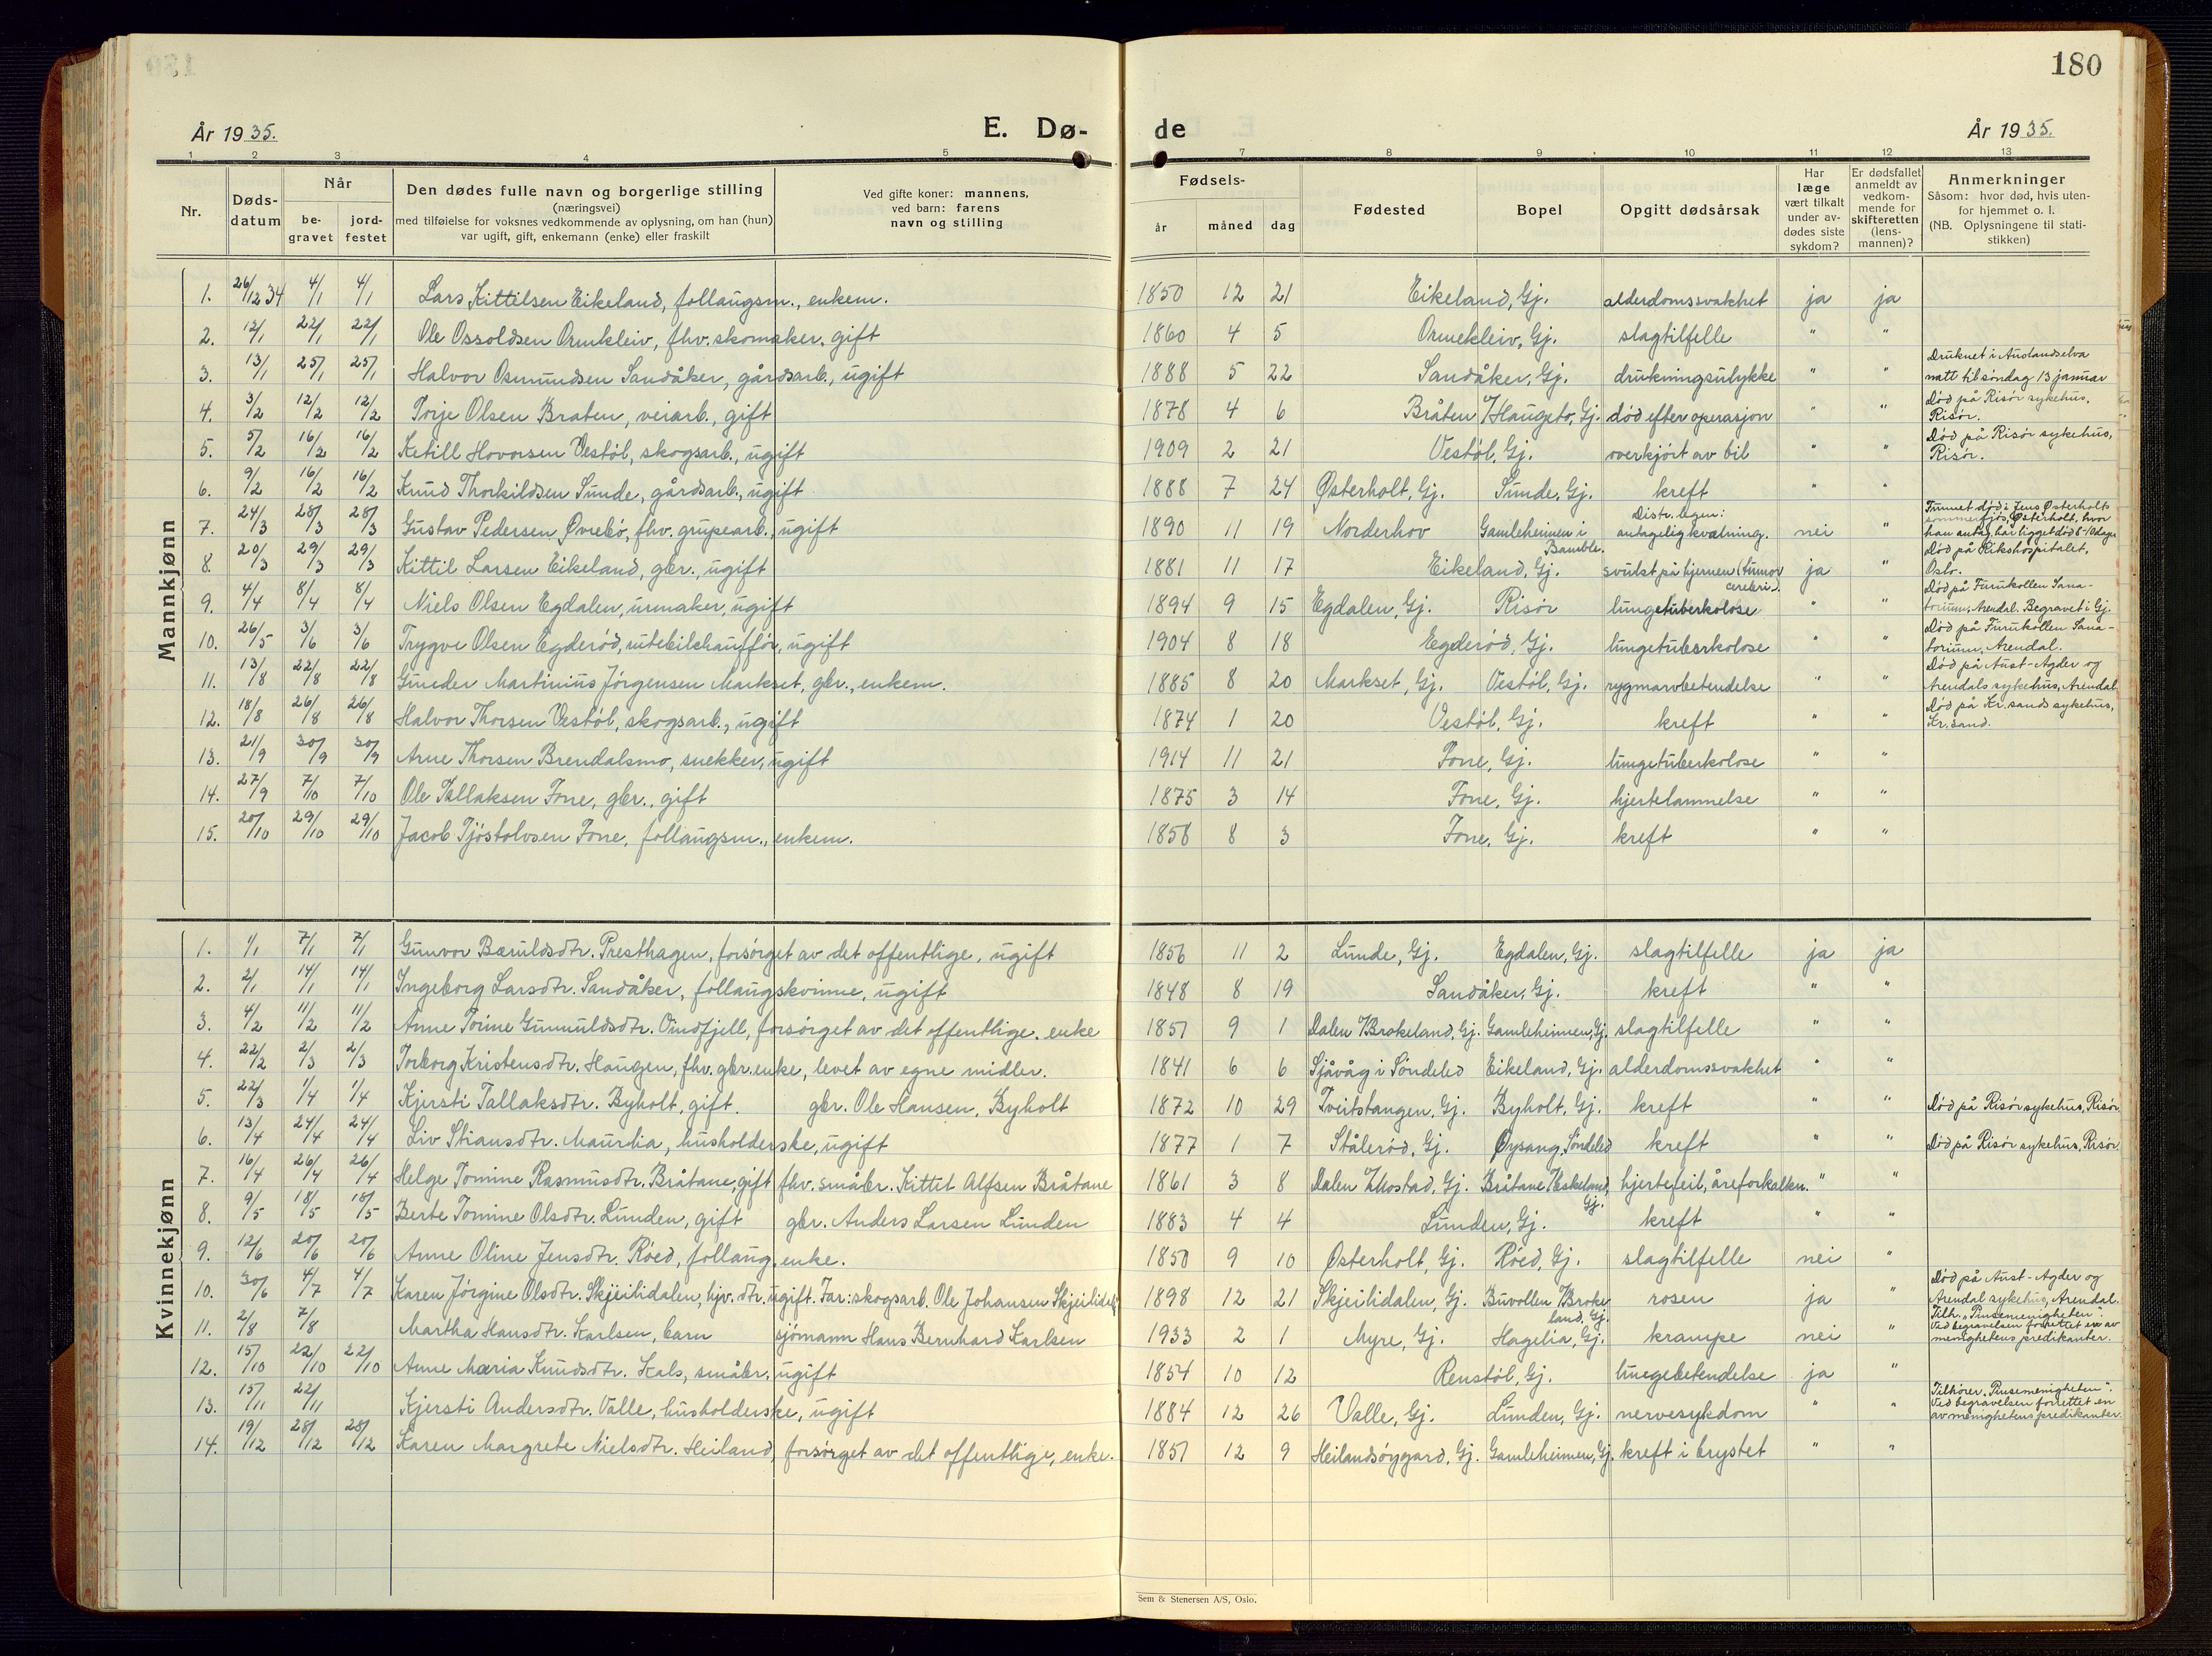 180
År 1935.
E. Dø-
de
År 1935.
1 2 3 4 5 7 8 9 10 11 12 13
Nr.
Døds-
datum
Når
be-
gravet
jord-
festet
Den dødes fulle navn og borgerlige stilling
(næringsvei)
med tilføielse for voksnes vedkommende av oplysning, om han (hun)
var ugift, gift, enkemann (enke) eller fraskilt
Ved gifte koner: mannens,
ved barn: farens
navn og stilling
Fødsels-
år måned dag
Fødested
Bopel
Opgitt dødsårsak
Har
læge
vært tilkalt
under av-
dødes siste
sykdom?
Er dødsfallet
anmeldt av
vedkom-
mende for
skifteretten
(lens-
mannen)?
Anmerkninger
Såsom: hvor død, hvis uten-
for hjemmet o. l.
(NB. Oplysningene til stati-
stikken)
Mannkjønn
1. 26/12 34 4/1 4/1 Lars Kittilsen Eikeland, follaugsm., enkem. 1850 12 21 Eikeland, Gj. alderdomssvakhet ja ja
2. 12/1 22/1 22/1 Ole Ossoldsen Ormkleiv, fhv. skomaker, gift 1860 4 5 Ormekleiv, Gj. slagtilfelle " "
3. 13/1 25/1 25/1 Halvor Osmundsen Sandåker, gårdsarb., ugift 1888 5 22 Sandåker, Gj. drukningsulykke " " Druknet i Audandselva
natt til søndag 13 januar
4. 3/2 12/2 12/2 Torje Olsen Braten, veiarb., gift 1878 4 6 Bråten u/Haugeto, Gj. død efter operasjon " " Død på Risør sykehus,
Risør.
5. 5/2 16/2 16/2 Ketill Hovorsen Vestøl, skogsarb., ugift 1909 2 21 Vestøl, Gj. overkjørt av bil " " Død på Risør sykehus,
Risør.
6. 9/2 16/2 16/2 Knud Thorkildsen Sunde, gårdsarb., ugift 1888 7 24 Østerholt, Gj. Sunde, Gj. kreft " "
7. 24/3 28/3 28/3 Gustav Pedersen Øvrebø, fhv. grupearb., ugift 1890 11 19 Norderhov Gamleheimen i
Bamble. Distr. legen:
antagelig kvælning. nei " Funnet død i Jens Østerholts
sommerfjøs, Østerholt, hvor
han antag. har ligget død 8-10 dage
8. 20/3 29/3 29/3 Kittil Larsen Eikeland, gbr., ugift 1881 11 17 Eikeland, Gj. svulst på hjernen (tumor
cerebri). ja " Død på Rikshospitalet,
Oslo.
9. 4/4 8/4 8/4 Niels Olsen Egdalen, urmaker, ugift 1894 9 15 Egdalen, Gj. Risør lungetuberkolose " " Død på Furukollen Sana-
torium, Arendal. Begravet i Gj.
10. 26/5 3/6 3/6 Trygve Olsen Egderød, rutebilchauffør, ugift 1904 8 18 Egderød, Gj. lungetuberkolose " " Død på Furukollen Sana-
torium, Arendal.
11. 13/8 22/8 22/8 Gunder Martinius Jørgensen Markset, gbr., enkem. 1885 8 20 Markset, Gj. Vestøl, Gj. rygmarvbetendelse " " Død på Aust-Agder og
Arendals sykehus, Arendal
12. 18/8 26/8 26/8 Halvor Thorsen Vestøl, skogsarb., ugift 1874 1 20 Vestøl, Gj. kreft " " Død på Kr. sands sykehus,
Kr. sand.
13. 21/9 30/9 30/9 Arne Thorsen Brendalsmo, snekker, ugift 1914 11 21 Fone, Gj. lungetuberkolose " "
14. 27/9 7/10 7/10 Ole Tallaksen Fone, gbr., gift 1875 3 14 Fone, Gj. hjertelammelse " "
15. 20/10 29/10 29/10 Jacob Tjøstolvsen Fone, follaugsm., enkem. 1858 8 3 Fone, Gj. kreft " "
Kvinnekjønn
1. 1/1 7/1 7/1 Gunvor Bæruldsdtr. Presthagen, forsørget av det offentlige, ugift 1856 11 2 Lunde, Gj. Egdalen, Gj. slagtilfelle ja ja
2. 2/1 14/1 14/1 Ingeborg Larsdtr. Sandåker, follaugskvinne, ugift 1848 8 19 Sandåker, Gj. kreft " "
3. 4/2 11/2 11/2 Anne Torine Gunnuldsdtr. Vindfjell, forsørget av det offentlige. enke 1851 9 1 Dalen u/Brokeland, Gj. Gamleheimen, Gj. slagtilfelle " "
4. 22/2 2/3 2/3 Torborg Kristensdtr. Haugen, fhv. gbr. enke, levet av egne midler. 1841 6 6 Sjåvåg i Søndeled Eikeland, Gj. alderdomssvakhet " "
5. 22/3 1/4 1/4 Kjersti Tallaksdtr. Byholt, gift. gbr. Ole Hansen, Byholt 1872 10 29 Tveitstangen, Gj. Byholt, Gj. kreft " " Død på Risør sykehus, Risør
6. 13/4 24/4 24/4 Liv Stiansdtr. Maurlia, husholderske, ugift 1877 1 7 Stålerød, Gj. Øysang, Søndeled kreft " " Død på Risør sykehus, Risør.
7. 16/4 26/4 26/4 Helge Tomine Rasmusdtr. Bråtane, gift fhv. småbr. Kittil Alfsen Bråtane 1861 3 8 Dalen u/Mostad, Gj. Bråtane u/Eskeland,
Gj. hjertefeil, åreforkalkn. " "
8. 9/5 18/5 18/5 Berte Tomine Olsdtr. Lunden, gift gbr. Anders Larsen Lunden 1883 4 4 Lunden, Gj. kreft " "
9. 12/6 20/6 20/6 Anne Oline Jensdtr. Røed, follaug, enke. 1850 9 10 Østerholt, Gj. Røed, Gj. slagtilfelle nei "
10. 30/6 4/7 4/7 Karen Jørgine Olsdtr. Skjeilidalen, hjv. dtr. ugift. Far: skogsarb. Ole Johansen Skjeilidal 1898 12 21 Skjeilidalen, Gj. Buvollen u/Broke
land, Gj. rosen ja " Død på Aust-Agder og
Arendal sykehus, Arendal.
11. 2/8 7/8 Martha Hansdtr. Karlsen, barn sjømann Hans Bernhard Karlsen 1933 2 1 Myre, Gj. Hagelia, Gj. krampe nei " Tilh. „Pinsemenigheten".
Ved begravelsen forrettet en av
menighetens predikanter.
12. 15/10 22/10 22/10 Anne Maria Knudsdtr. Kals, småbr., ugift 1854 10 12 Renstøl, Gj. lungebetendelse ja "
13. 15/11 22/11 Kjersti Andersdtr. Valle, husholderske, ugift 1884 12 26 Valle, Gj. Lunden, Gj. nervesykdom " " Tilhører „Pinsemenigheten".
Ved begravelsen forrettet en
av menighetens predikanter.
14. 19/12 28/12 28/12 Karen Margrete Nielsdtr. Heiland, forsørget av det offentlige, enke. 1851 12 9 Heilandsøygard, Gj. Gamleheimen, Gj. kreft i brystet " "
Sem & Stenersen A/S, Oslo.